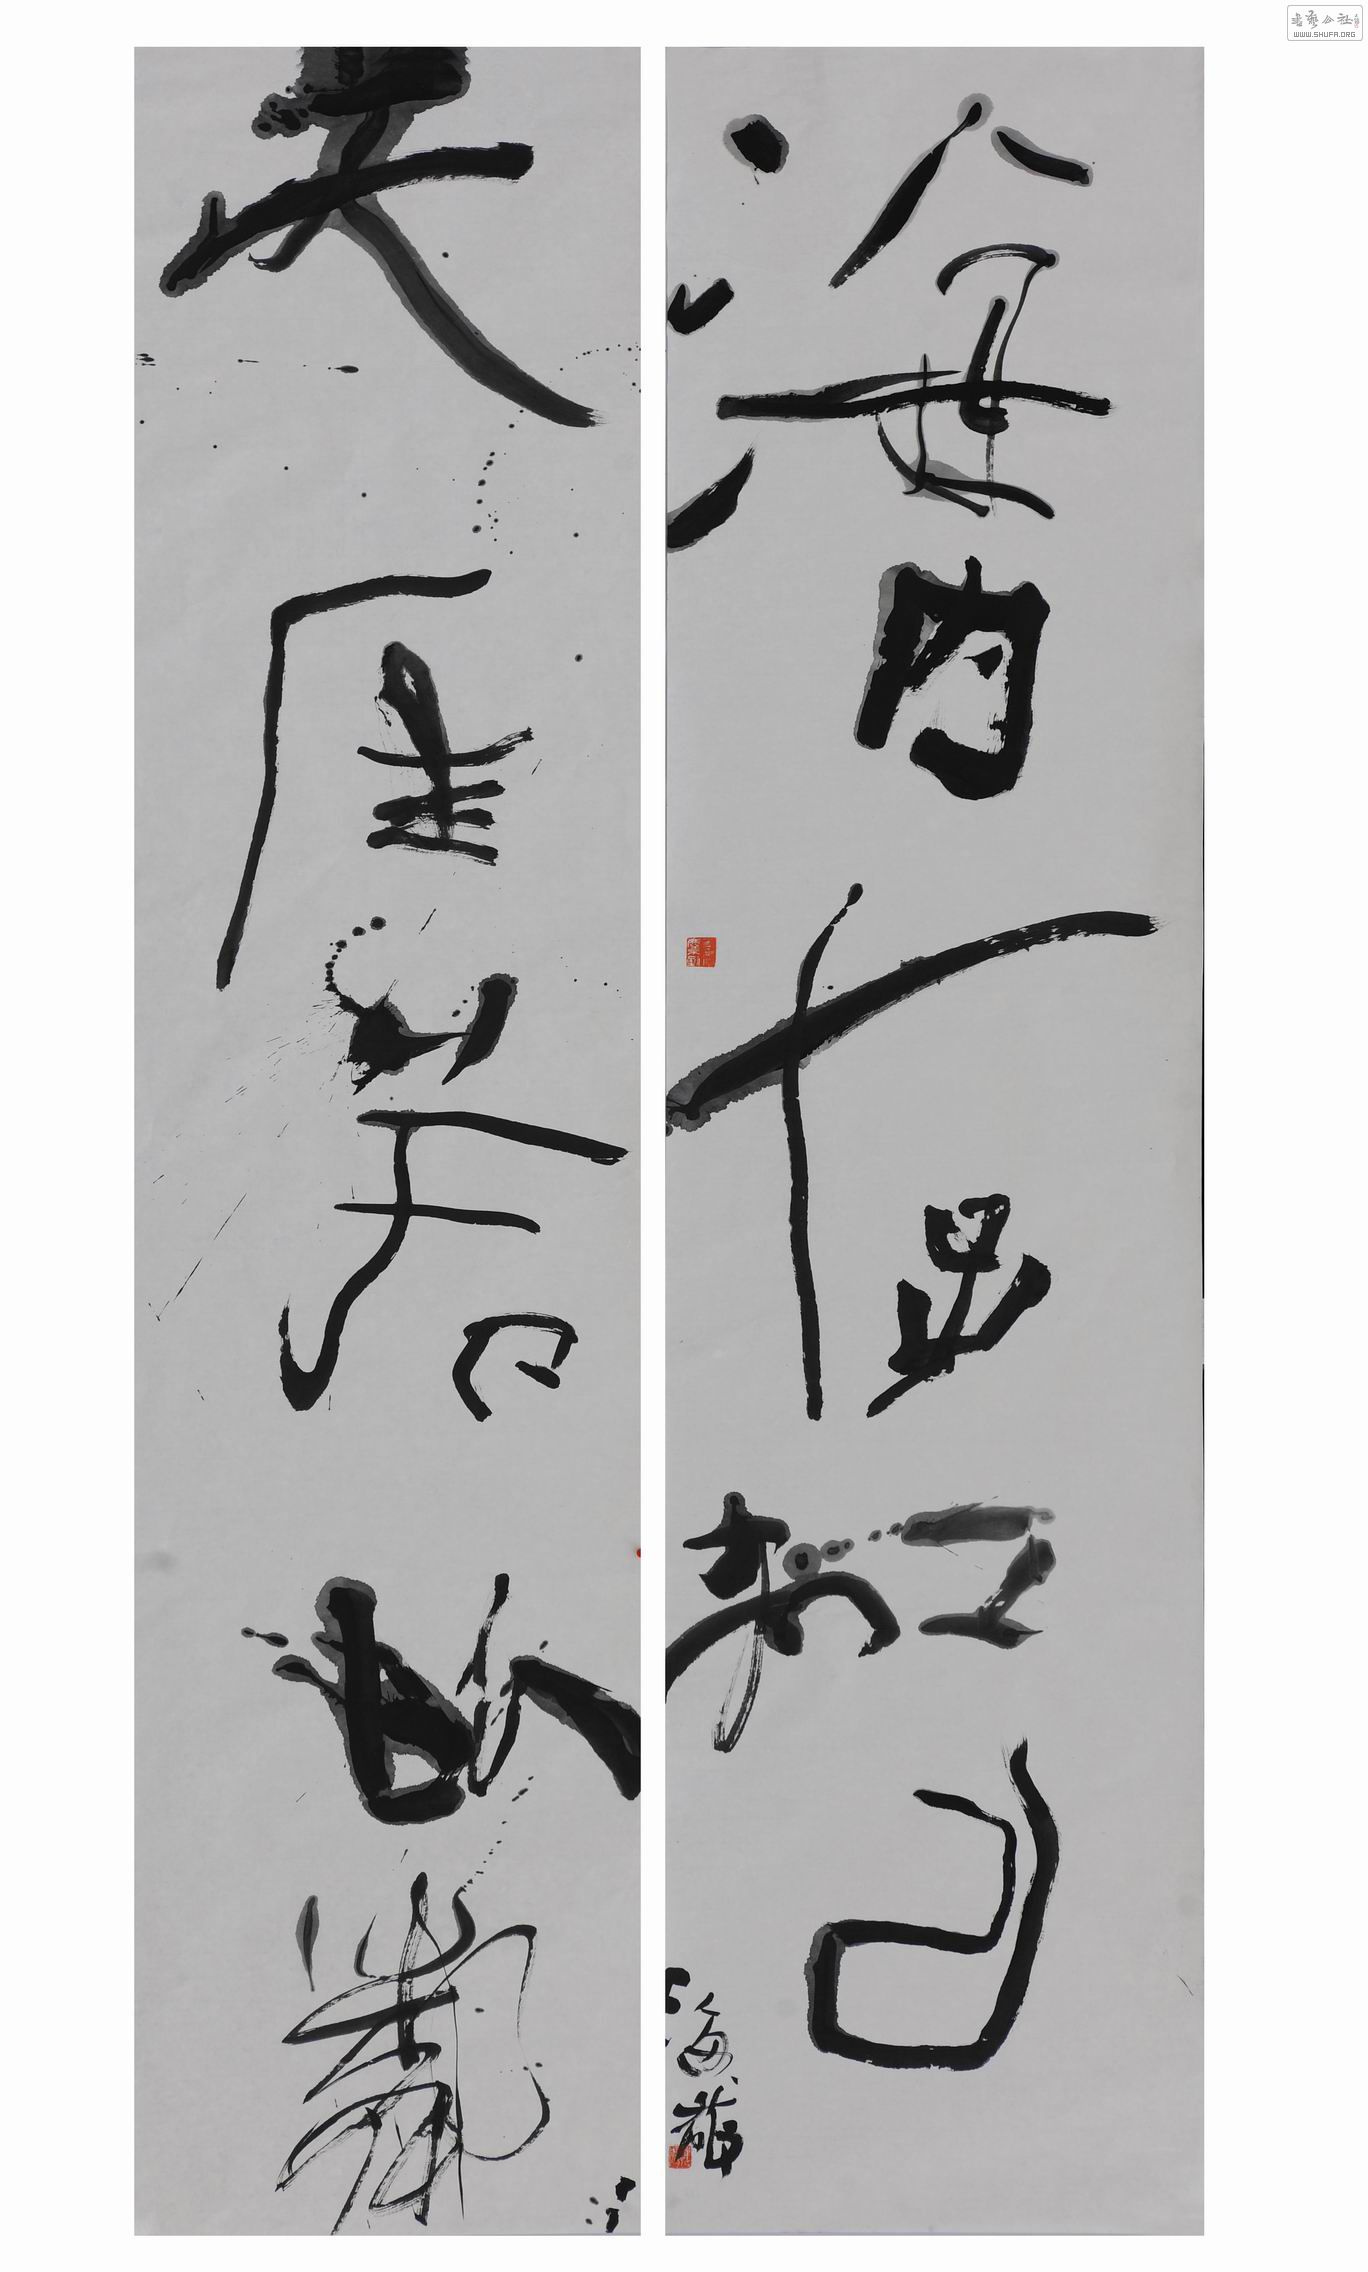 海内存知己
天涯若比鄰
海雄
書藝公社
WWW.SHUFA.ORG